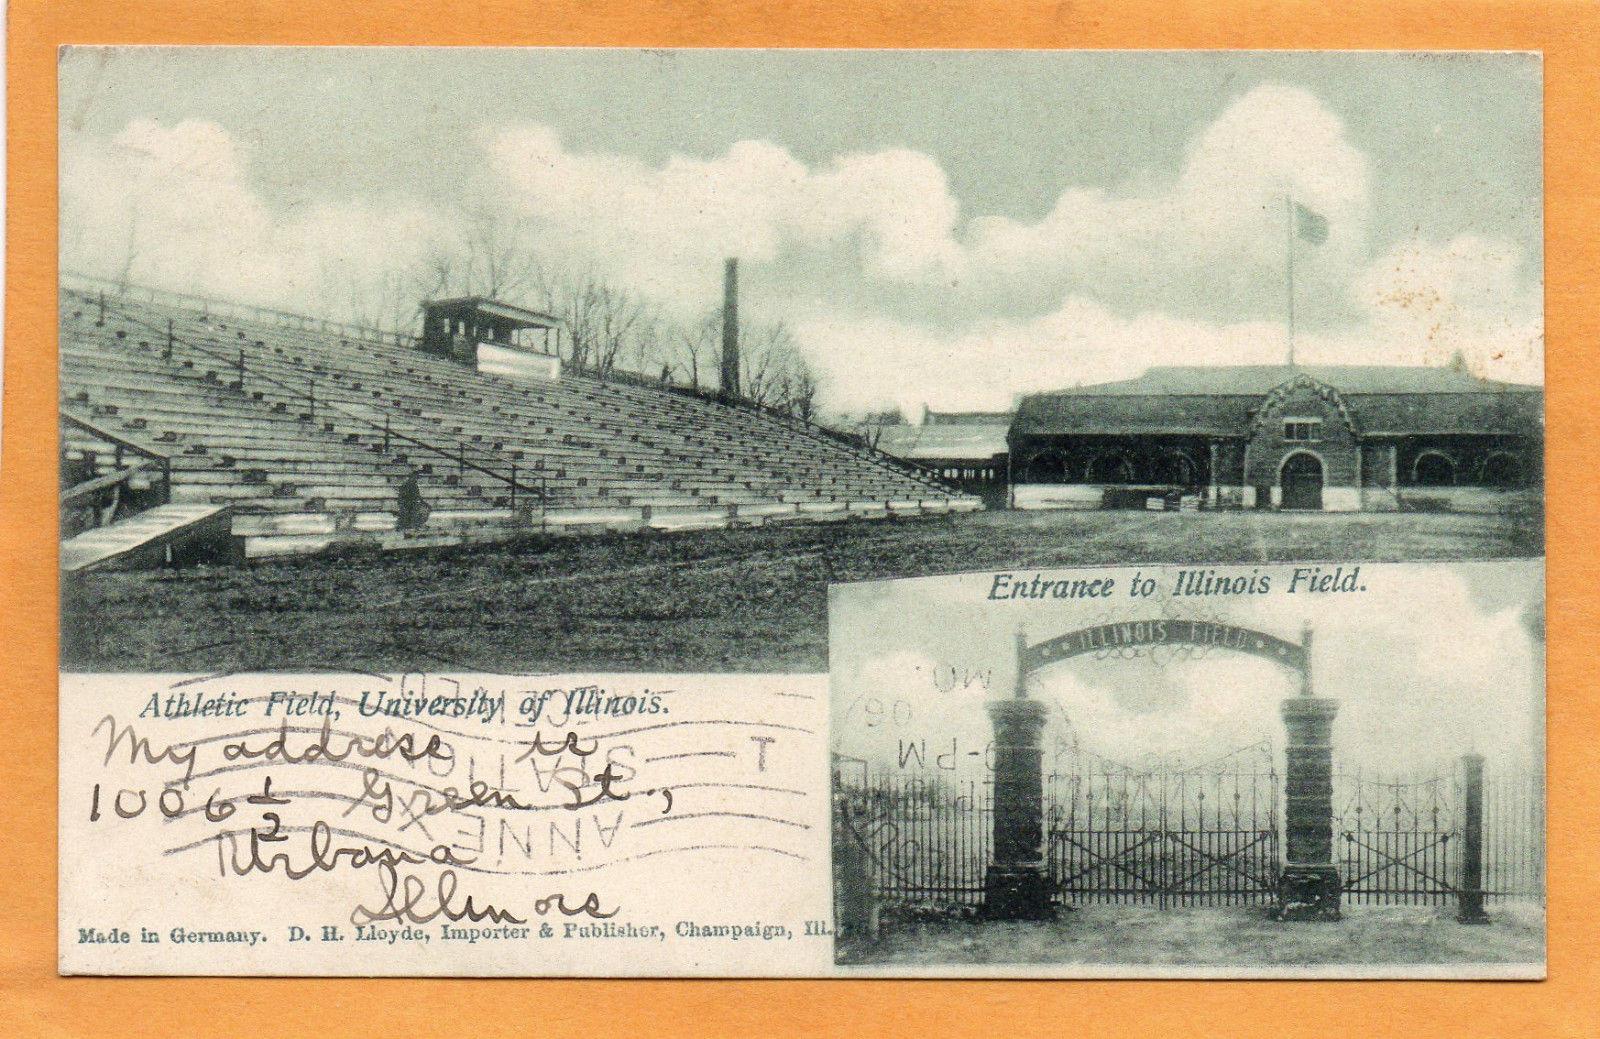 Entrance to Illinois Field.
ILLINOIS FIELD
Athletic Field, University of Illinois.
My address is
1006 1/2 Green St.,
Urbana
Illinois
Made in Germany. D. H. Lloyde, Importer & Publisher, Champaign, Ill.
RECEIVED
STATION
1
ANNEX
MO.
06
-PM